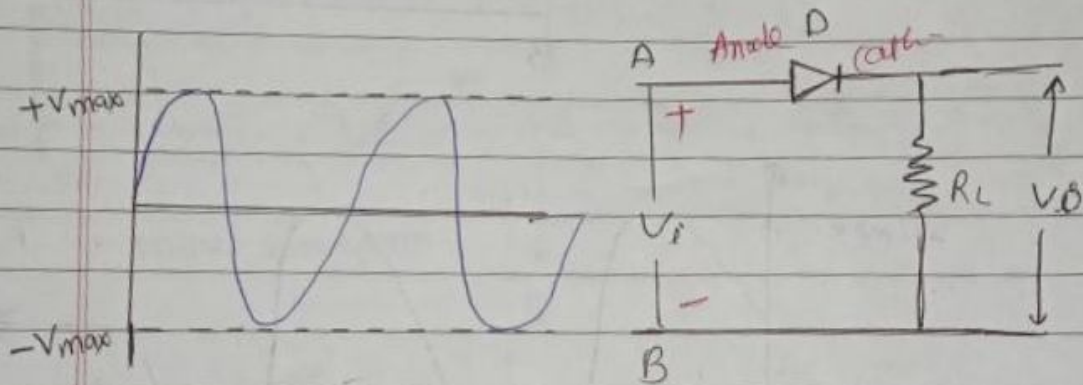 +Vmax
-Vmax
A
Anode
D
Cath-
+
Vi
-
B
RL
VO